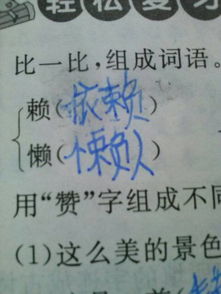 轻松复习
比一比,组成词语。
赖(依赖)
懒(懒人)
用“赞”字组成不同
(1)这么美的景色